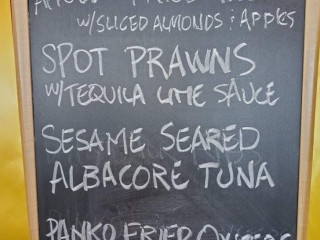 W/SLICED ALMONDS & APPLES
SPOT PRAWNS
W/TEQUILA LIME SAUCE
SESAME SEARED
ALBACORE TUNA
PANKO FRIED OYSTERS